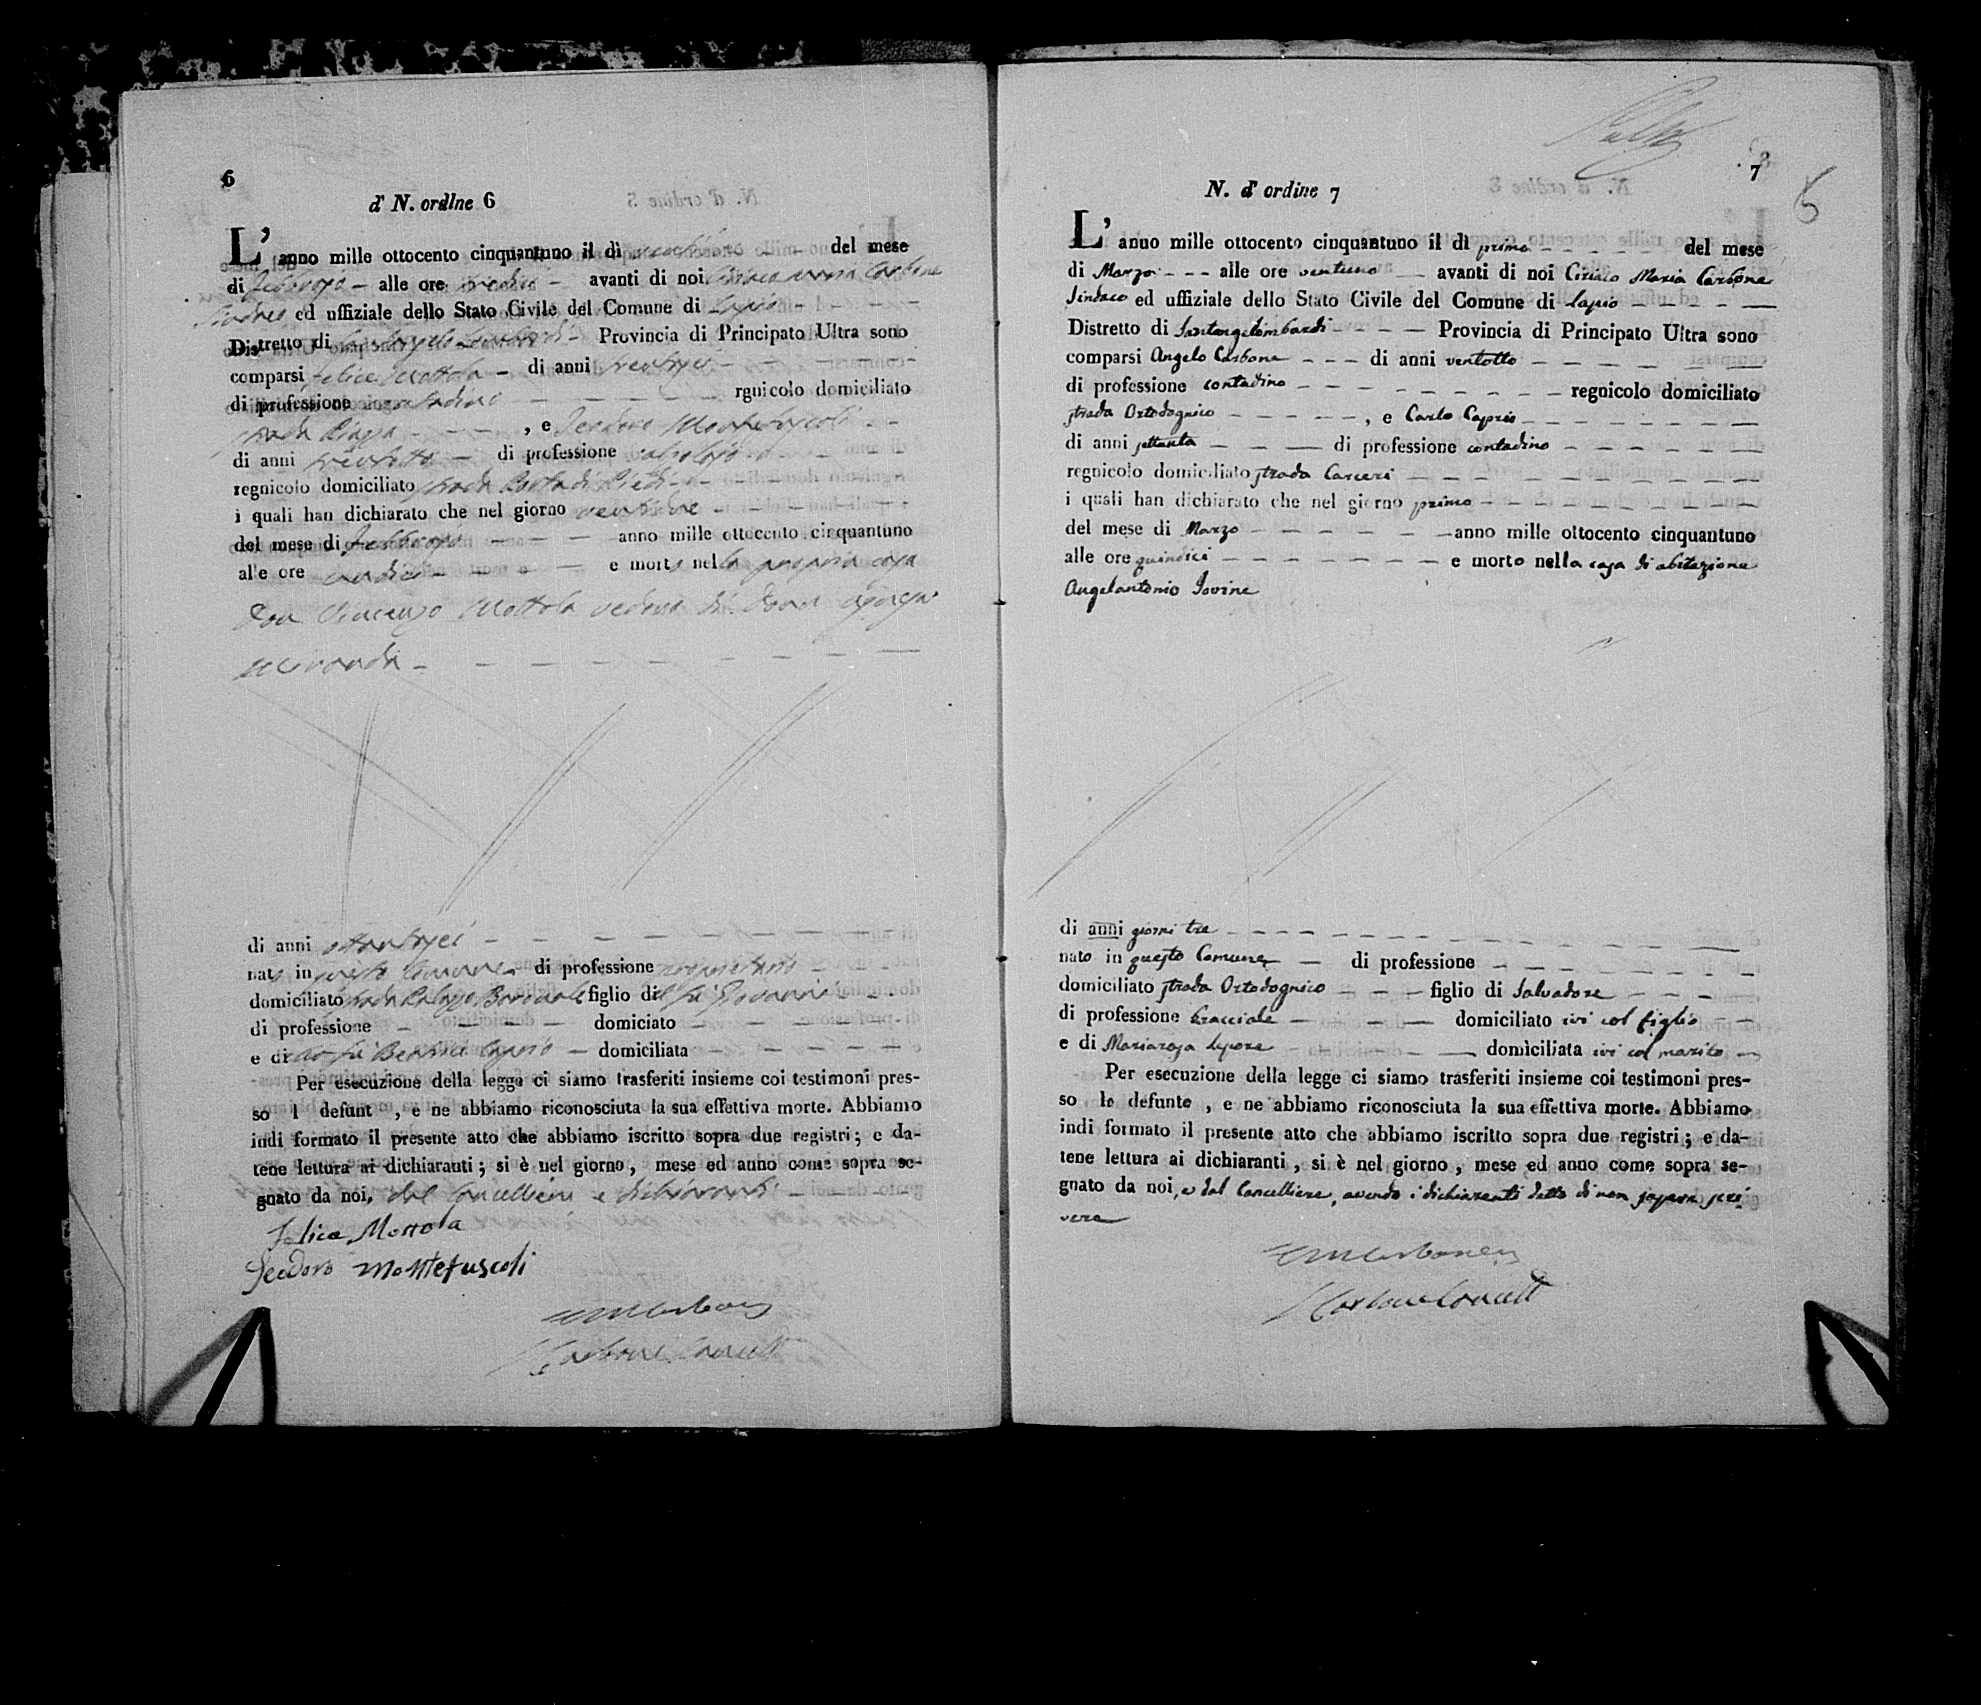 6
d' N. ordlne 6
L' anno mille ottocento cinquantuno il dì del mese
di Febbrajo alle ore avanti di noi Ciriaco Maria Carbone
Sindaco ed uffiziale dello Stato Civile del Comune di Lapio
Distretto di Provincia di Principato Ultra sono
comparsi Felice Mottola di anni trentasei
di professione rgnicolo domiciliato
strada Piazza , e Teodoro Montefuscoli
di anni di professione calzolajo
regnicolo domiciliato strada Porta di Piedi
i quali han dichiarato che nel giorno ventidue
del mese di Febbrajo anno mille ottocento cinquantuno
alle ore undici e morto nella propria casa
Don Vincenzo Mottola vedovo di Donna
di anni ottantasei
nato in questo Comune di professione proprietario
domiciliato strada Palazzo Baronale figlio del fu Giovanni
di professione domiciato
e di fu Beatrice domiciliata
Per esecuzione della legge ci siamo trasferiti insieme coi testimoni pres-
so l defunt , e ne abbiamo riconosciuta la sua effettiva morte. Abbiamo
indi formato il presente atto che abbiamo iscritto sopra due registri; e da-
tene lettura ai dichiaranti; si è nel giorno, mese ed anno come sopra se-
gnato da noi, dal Cancelliere e dichiaranti
Felice Mottola
Teodoro Montefuscoli
Carbone Cancell
7
6
N. d' ordine 7
L' anno mille ottocento cinquantuno il dì primo del mese
di Marzo alle ore ventuno avanti di noi Ciriaco Maria Carbone
Sindaco ed uffiziale dello Stato Civile del Comune di Lapio
Distretto di Santangelombardi Provincia di Principato Ultra sono
comparsi Angelo Carbone di anni ventotto
di professione contadino regnicolo domiciliato
strada Ortodognico , e Carlo Caprio
di anni settanta di professione contadino
regnicolo domiciliato strada Carceri
i quali han dichiarato che nel giorno primo
del mese di Marzo anno mille ottocento cinquantuno
alle ore quindici e morto nella casa di abitazione
Angelantonio Iovine
di anni giorni tre
nato in questo Comune di professione
domiciliato strada Ortodognico figlio di Salvadore
di professione bracciale domiciliato ivi col figlio
e di Mariarosa Lepore domiciliata ivi col marito
Per esecuzione della legge ci siamo trasferiti insieme coi testimoni pres-
so lo defunto , e ne abbiamo riconosciuta la sua effettiva morte. Abbiamo
indi formato il presente atto che abbiamo iscritto sopra due registri; e da-
tene lettura ai dichiaranti, si è nel giorno, mese ed anno come sopra se-
gnato da noi, e dal Cancelliere, avendo i dichiaranti detto di non sapere scri
vere
Carbone Cancell